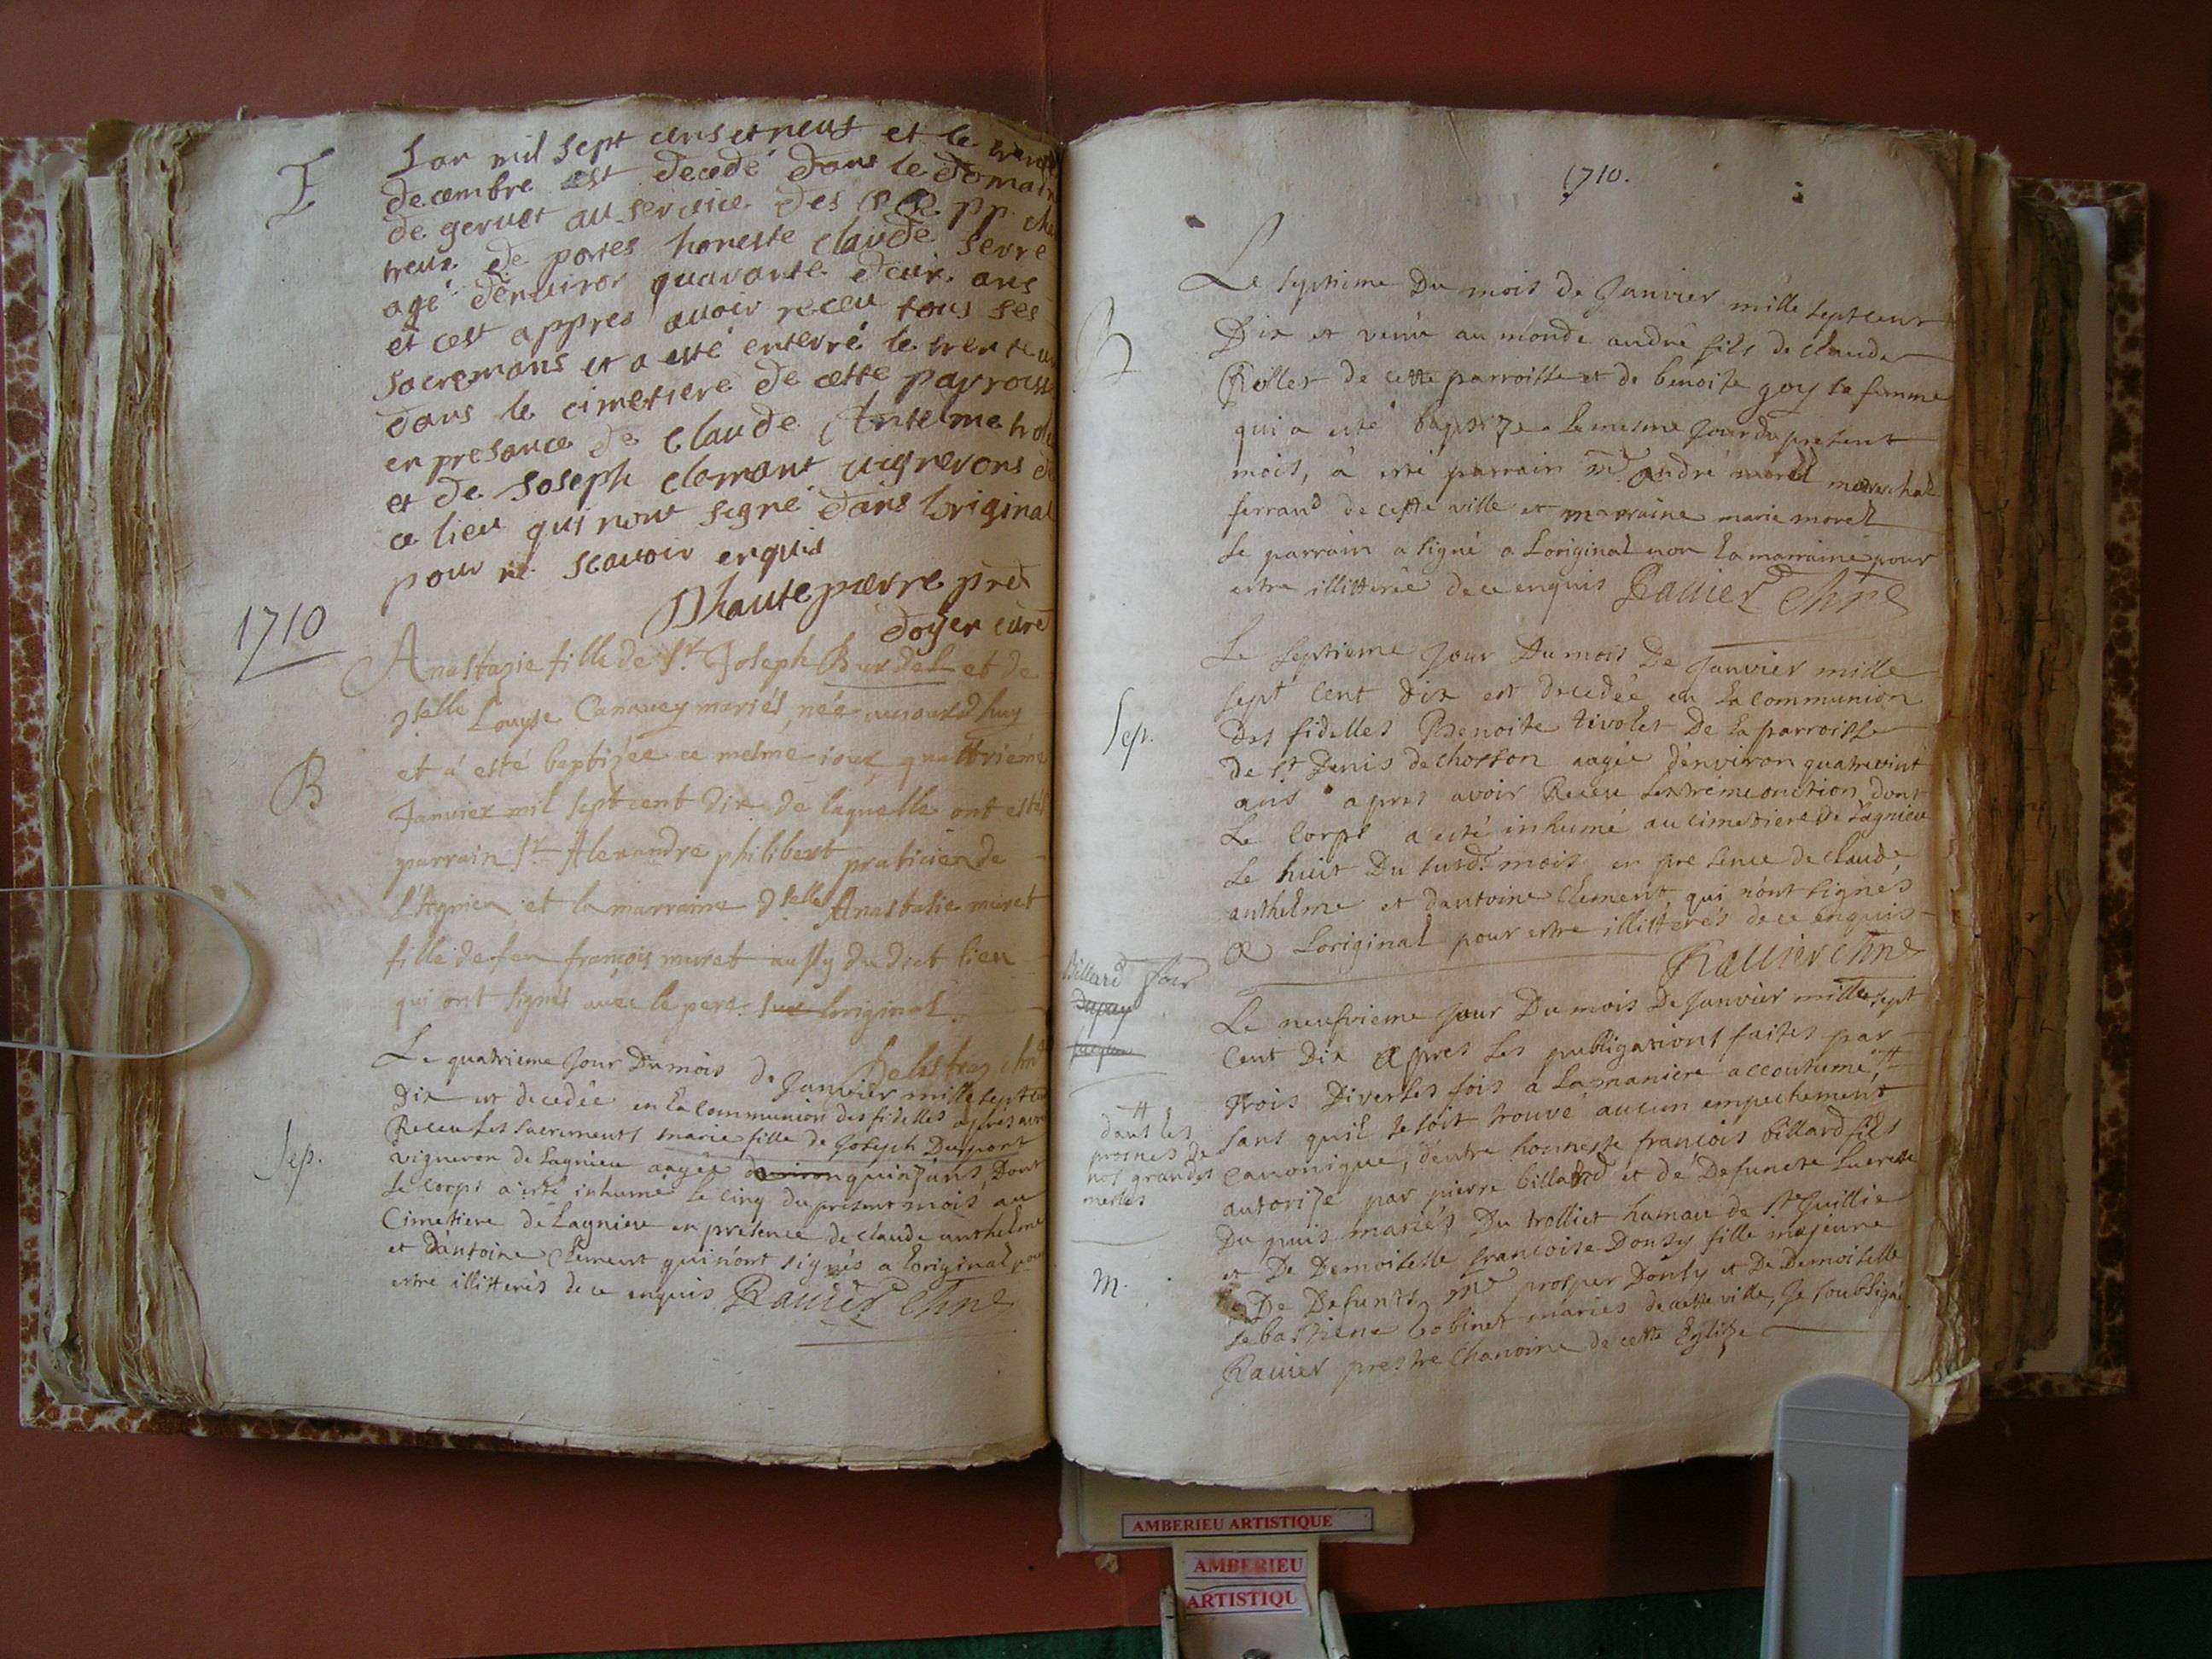 Lan mil sept cens et neuf et le trente
decembre est decedé dans le domain
de gervet au service des RR pp char
treux de portes honeste claude serre
agé denviron quarante deux ans
et cest appres avoir receu tous ses
sacremans et a esté enterré le trente un
dans le cimetiere de cette parroisse
en presance de claude Antelme
et de Joseph clemant vignerons de
ce lieu qui nont signé dans loriginal
pour ne scavoir enquis
Dhautepierre pred
doyen curé
1710
B
Anastazie fille de Sr Joseph Burdel et de
dselle Louyse Canavey mariés, née aujourdhuy
et à esté baptizée ce mesme iour quattriéme
Janvier mil sept cent dix de laquelle ont estés
parrain Sr Alexandre philibert praticien de
LAgnieu et la marraine dselle Anastasie muret
fille de feu françois muret aussy dudict lieu
qui ont signés avec le pere sur loriginal.
Sep.
Le quatrieme Jour Du mois de Janvier mille sept cent
Dix est decedée en La Communion des fidelles apres avoir
Receu Les sacrements marie fille de Joseph Dupont
vigneron de Lagnieu aagée quinzeans, Dont
Le Corps a esté inhumé le cinq du present mois au
Cimetiere de Lagnieu en presence de Claude anthelme
et Dantoine Clement qui nont signés a Loriginal pour
estre illitterés de ce enquis Ravier Chne
1710.
B
Le septieme Du mois de Janvier mille sept cent
Dix est venu au monde andré fils de Claude
Rollet de cette parroisse et de benoite goy sa femme
qui a esté baptizé Le mesme Jour du present
mois, à esté parrain mr andré morel mareschal
ferrand de cette ville et marraine marie morel
Le parrain a signé a Loriginal non La marraine pour
estre illitterée de ce enquis Ravier Chne
Sep.
Le septieme Jour Du mois De Janvier mille
sept Cent Dix est decedée en La communion
Des fidelles Benoite tivolet De La parroisse
de St Denis de chosson aagée d'environ quatrevint
ans apres avoir Receu Lextreme onction, dont
Le Corps a esté inhumé au cimetiere de Lagnieu
Le huit Du susd. mois en presence de claude
anthelme et dantoine Clement, qui n'ont signés
a Loriginal pour estre illitterés de ce enquis
Ravier Chne
Billard
Dupuy
Le neufvieme Jour Du mois De Janvier mille sept
Cent Dix apres Les publications faites par
trois Diverses fois a La maniere accoutumé,
dans les
prosnes de
nos grandes
messes
sans quil se soit trouvé aucun empechement
Canonique, d'entre honneste francois billard fils
autorisé par pierre billard et de Defuncte Lucresse
Du puis mariés Du trolliet hamau de St Vuillie
M.
et De Demoiselle francoise Donsy fille majeure
De Defunts mre prosper Donsy et De Demoiselle
sebastiene bobinet mariés de cette ville, Je soubsigné
Ravier prestre Chanoine de cette Eglise
AMBERIEU ARTISTIQUE
AMBERIEU
ARTISTIQU